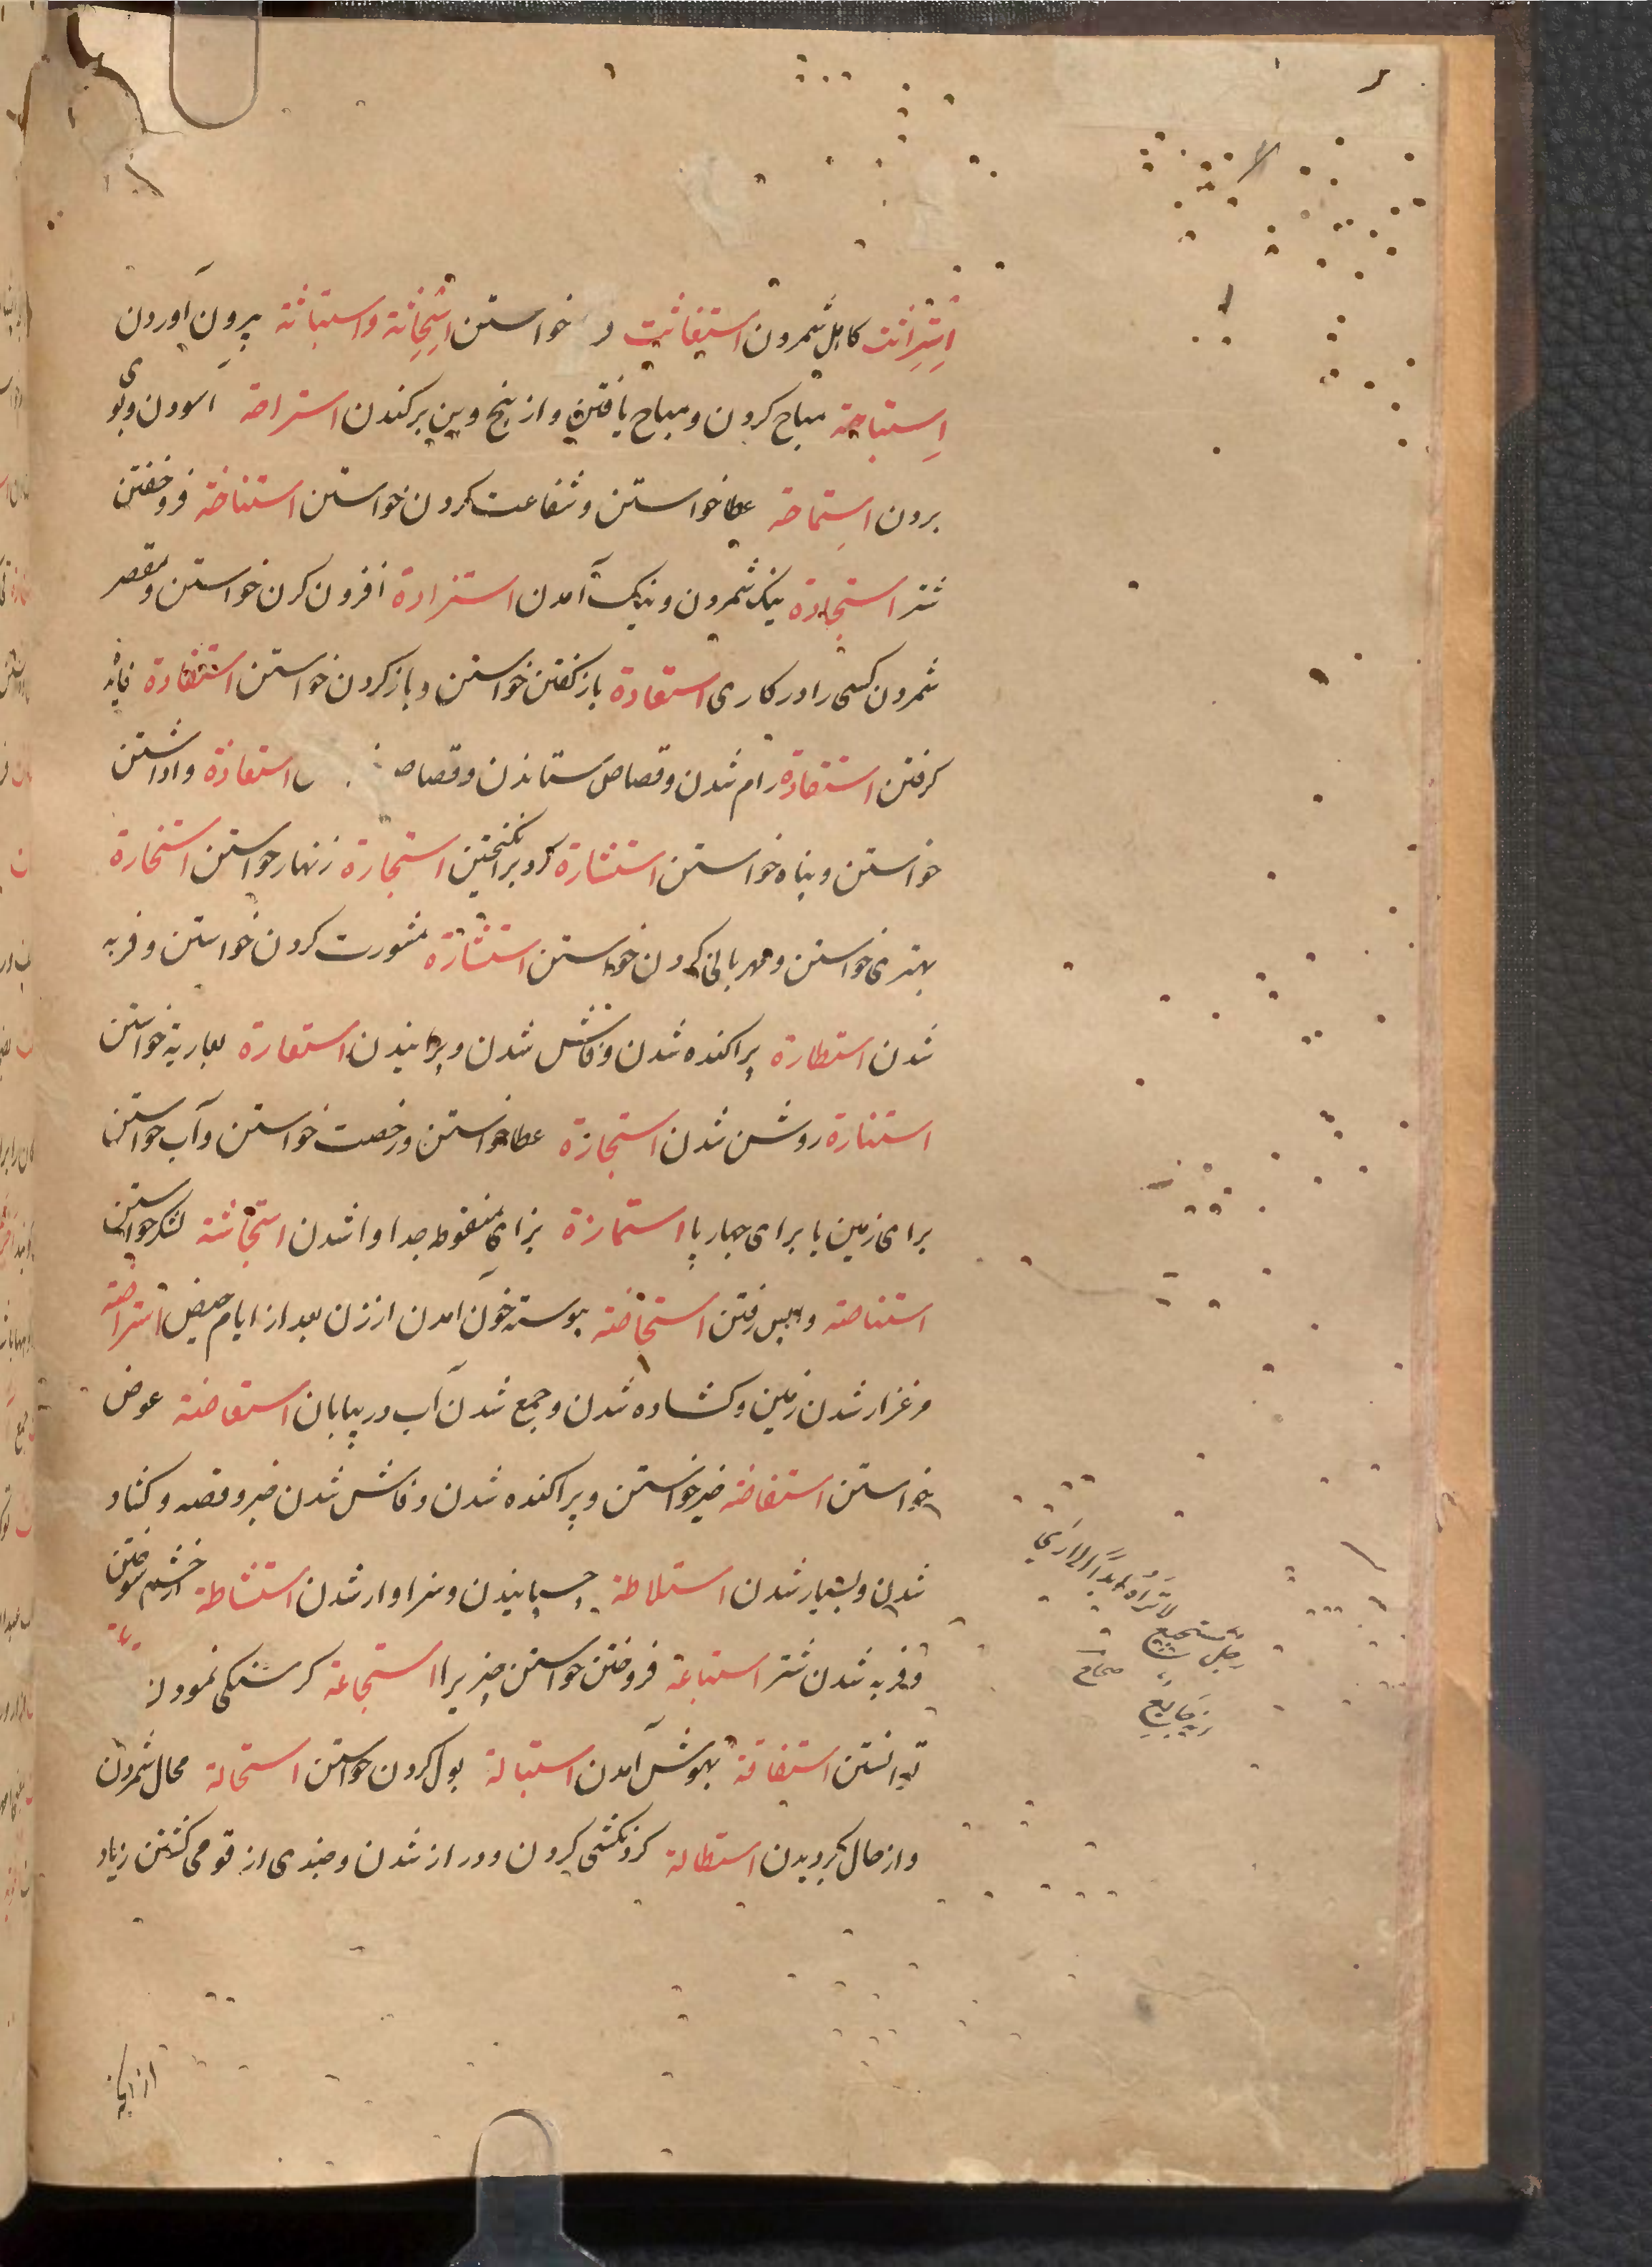 اِستِراثت کاهل شمردن استغاثت خواستن استِجاثة واستباثة بیرون آوردن
اِستباحة مباح کردن ومباح یافتن واز بیخ وبن برکندن استراحة آسودن وبوی
بردن استِماحة عطا خواستن وشفاعت کردن خواستن استناخة فروخفتن
شتر استجادة نیک شمردن ونیک آمدن استزادة افزون کردن خواستن ومقصر
شمردن کسی را در کاری استعادة باز گفتن خواستن وباز کردن خواستن استفادة فایده
گرفتن استقادة رام شدن وقصاص ستاندن وقصاص استعاذة واداشتن
خواستن وپناه خواستن استثارة گرد برانگیختن استجارة زنهار خواستن استخارة
بهتری خواستن ومهربانی کردن خواستن استشارة مشورت کردن خواستن وفربه
شدن استطارة پراکنده شدن وفاش شدن وپرانیدن استعارة بعاریة خواستن
استنارة روشن شدن استجازة عطا خواستن ورخصت خواستن وآب خواستن
برای زمین یا برای چهارپا استمازة بزای منقوط جدا واشدن استجاشة لشکر خواستن
استناصة واپس رفتن استحاضة پیوسته خون آمدن از زن بعد از ایام حیض استراضة
مرغزار شدن زمین وکشاده شدن وجمع شدن آب در بیابان استعاضة عوض
خواستن استفاضة خیر خواستن وپراکنده شدن وفاش شدن خبر وقصه وکشاد
شدن وبسیار شدن استلاطة چسپانیدن وسزاوار شدن استشاطة از خشم سوختن
وفربه شدن شتر استباعة فروختن خواستن چیزیرا استجاعة گرسنگی نمودن
توانستن استفاقة بهوش آمدن استبالة بول کردن خواستن استحالة محال شمردن
واز حال گردیدن استطالة گردنکشی کردن ودراز شدن وچندی از قومی کشتن زیاد
لا تراه ابدا الا
رجل مستجیع
جایع
صحاح